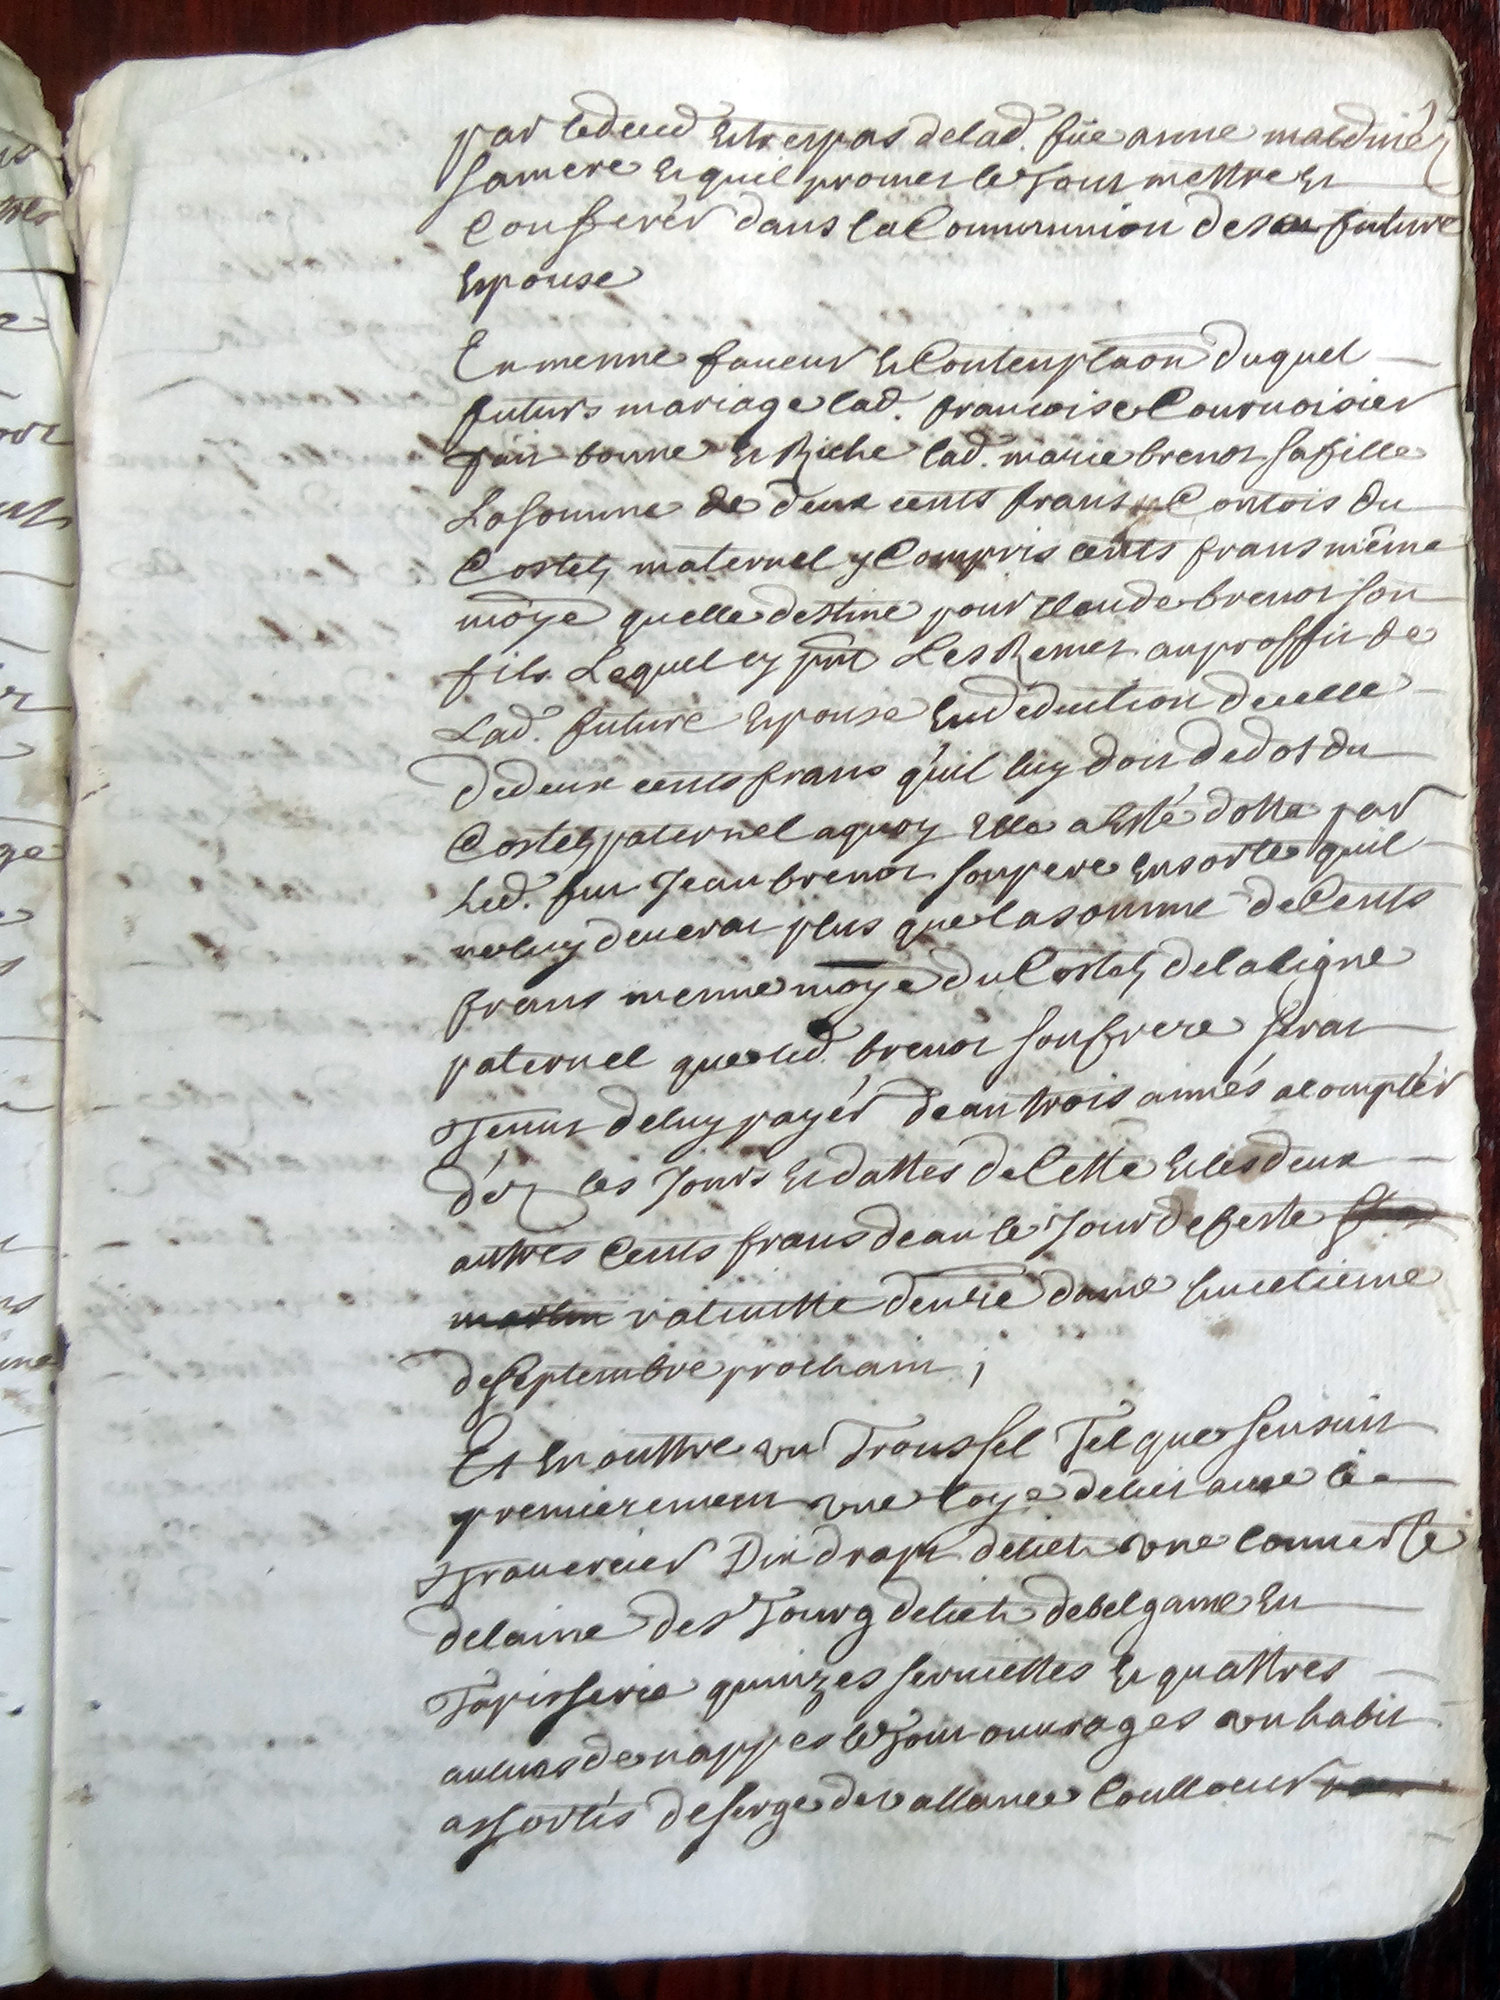 par ledeced Et trespas delad. füe anne maldiné
sa mere Et quil promet le tout mettre Et
Conferér dans la Communion de sa future
Espouse
En mesme faveur Et Contemplaon duquel
futurs mariage lad. francoise Cournoisier
fait bonne Et Riche lad. marie brenot sa fille
La somme de deux cents frans Contois du
Costel maternel y Compris cents frans même
moyé quelle destine pour claude brenot son
fils Lequel cy pnt Les Remet au proffit de
Lad. future Espouse En deduction de celle
de deux cents frans qüil luy doit de dot du
Costel paternel a quoy Elle a Esté dotte par
Led. fut Jean brenot son pere En sorte quil
ne luy deverat plus que la somme de Cents
frans mesme moyé du Costel de la ligne
paternel que led. brenot son frere serat
Tenut de luy payér dean trois annés a comptér
déz les Jours Et dattes de Cette Et les deux
autres Cents frans dean le Jour de feste
nativitte denre dame huictieme
de septembre prochain ;
Et En outtre un Troussel Tel que sensuit
premierement une Coye de lict avec le
Traversier Din drapt de lict une couverte
de laine des Tourg de lict de belgame En
Tapisserie quinzes serviettes Et quattres
aulnes de nappes le tout ouvrages un habit
assortis de serge de vallance Coulloeur